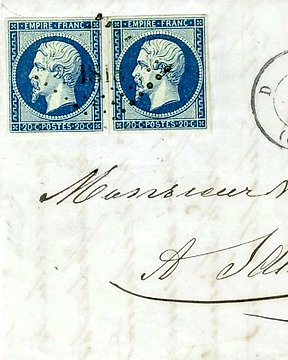 EMPIRE FRANC EMPIRE FRANC
20 C POSTES 20 C 20 C POSTES 20 C
D
Monsieur
A